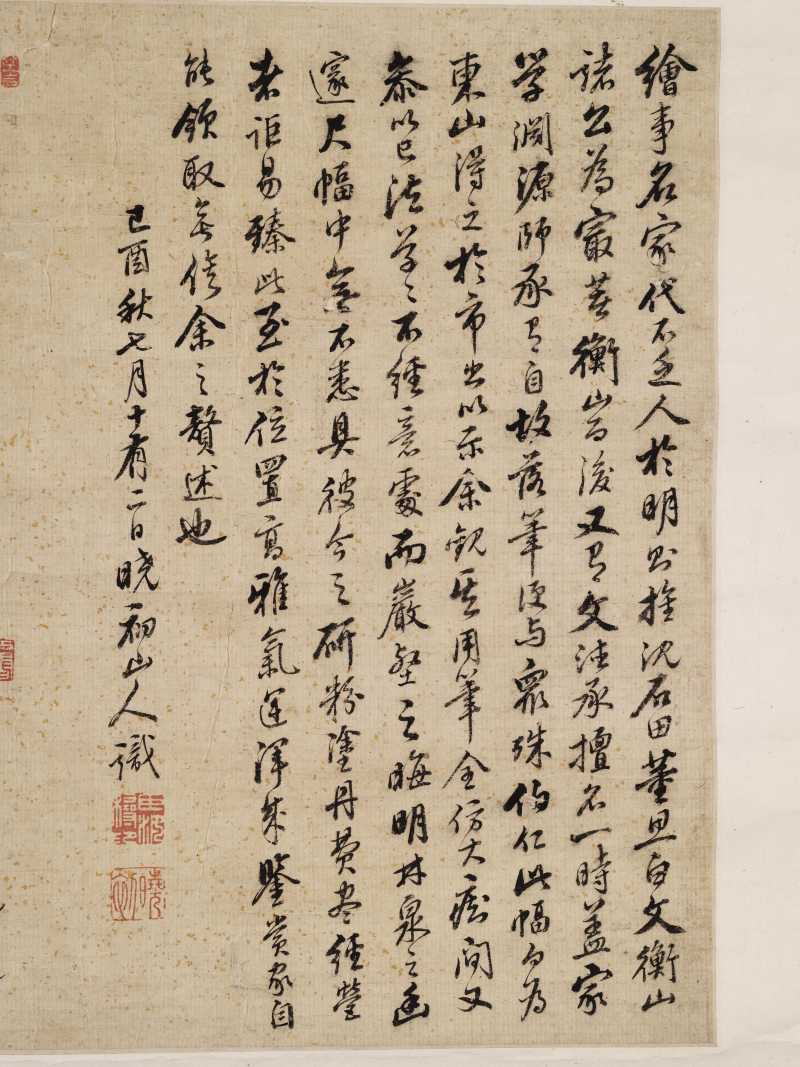 繪事名家代不乏人於明則推沈石田董思白文衡山
諸公為最若衡山而後又有文法承擅名一時蓋家
學淵源師承有自故落筆便与眾殊伯仁此幅向為
東山得之於市出以示余觀其用筆全仿大癡間又
參以己法草草不經意處而巖壑之晦明林泉之幽
邃尺幅中無不悉具彼今之研粉塗丹費盡經營
者詎易臻此至於位置高雅氣運渾成鑒賞家自
能領取無俟余之贅述也
己酉秋七月十有二日曉初山人識
曉初